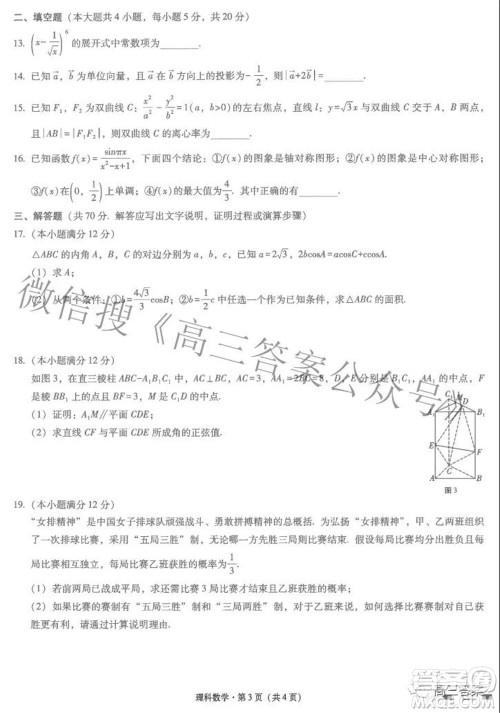 二、填空题（本大题共4小题，每小题5分，共20分）
13. (x-1/√x)^6 的展开式中常数项为______.
14. 已知a⃗，b⃗为单位向量，且a⃗在b⃗方向上的投影为-1/2，则|a⃗+2b⃗|=______.
15. 已知F₁，F₂为双曲线C：x²/a²-y²/b²=1(a，b>0)的左右焦点，直线l：y=√3x与双曲线C交于A，B两点，
且|AB|=|F₁F₂|，则双曲线C的离心率为______.
16. 已知函数f(x)=sinπx/(x²-x+1)，下面四个结论：①f(x)的图象是轴对称图形；②f(x)的图象是中心对称图形；
③f(x)在(0，1/2)上单调；④f(x)的最大值为4/3. 其中正确的有______.
三、解答题（共70分. 解答应写出文字说明，证明过程或演算步骤）
17.（本小题满分12分）
△ABC的内角A，B，C的对边分别为a，b，c，已知a=2√3，2bcosA=acosC+ccosA.
（1）求A；
（2）从两个条件：①b=4√3/3cosB；②b=1/2c中任选一个作为已知条件，求△ABC的面积.
18.（本小题满分12分）
如图3，在直三棱柱ABC-A₁B₁C₁中，AC⊥BC，AA₁=2BC=8，D，E分别为B₁C₁，AA₁的中点，F
是棱BB₁上的点且BF=3，M是C₁D的中点.
（1）证明：A₁M∥平面CDE；
（2）求直线CF与平面CDE所成角的正弦值.
C₁ M D
A₁ B₁
E F
C
A B
图3
19.（本小题满分12分）
“女排精神”是中国女子排球队顽强战斗、勇敢拼搏精神的总概括. 为弘扬“女排精神”，甲、乙两班组
织了一次排球比赛，采用“五局三胜”制，无论哪一方先胜三局则比赛结束. 假定在每局比赛中，甲班
每局比赛获胜的概率均为1/3.
（1）若前两局已战成平局，求还需要3局比赛才结束且乙班获胜的概率；
（2）如果比赛的赛制有“五局三胜”制和“三局两胜”制，对于甲班来说，请问选择哪种比赛赛制对
自己获胜有利？请通过计算说明理由.
理科数学·第3页（共4页）
微信搜《高三答案公众号》